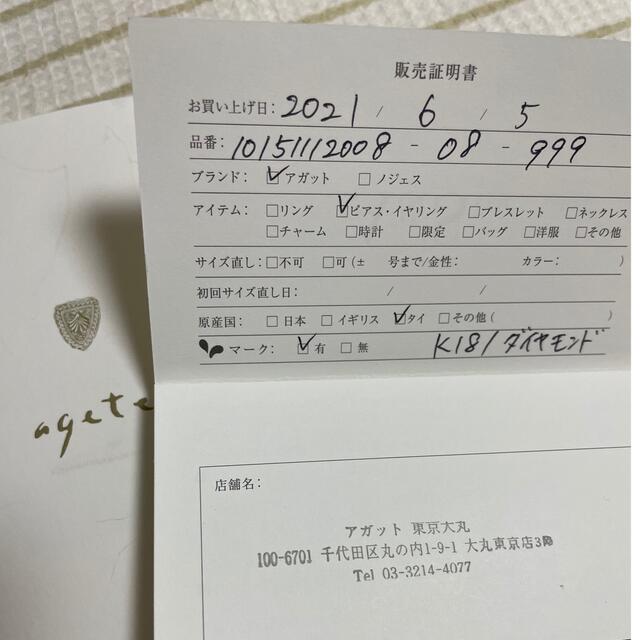 販売証明書
お買い上げ日: 2021 / 6 / 5
品番: 10151112008 - 08 - 999
ブランド: ☑アガット □ノジェス
アイテム: □リング ☑ピアス・イヤリング □ブレスレット □ネックレス
□チャーム □時計 □限定 □バッグ □洋服 □その他
サイズ直し: □不可 □可(± 号まで/金性: カラー: )
初回サイズ直し日: / /
原産国: □日本 □イギリス ☑タイ □その他( )
マーク: ☑有 □無 K18/ダイヤモンド
agete
店舗名:
アガット 東京大丸
100-6701 千代田区丸の内1-9-1 大丸東京店3階
Tel 03-3214-4077